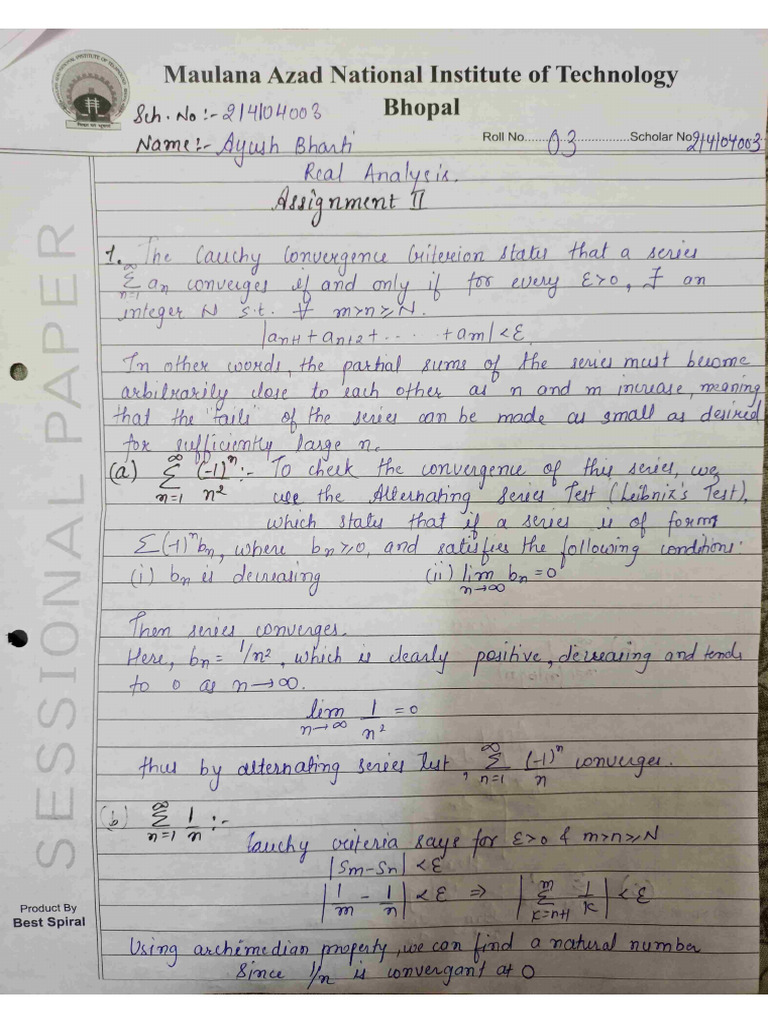 Maulana Azad National Institute of Technology
Bhopal
Sch. No :- 214104003
Roll No......03..................Scholar No 214104003
Name:- Ayush Bharti
Real Analysis.
Assignment II
1. The Cauchy Convergence Criterion states that a series
∞Σn=1 an converges if and only if for every ε>0, ∃ an
integer N s.t. ∀ m>n≥N.
|an+1 + an+2 + ...... + am| < ε.
In other words, the partial sums of the series must become
arbitrarily close to each other as n and m increase, meaning
that the "tails" of the series can be made as small as desired
for sufficiently large n.
(a) ∞Σn=1 (-1)^n/n² :- To check the convergence of this series, we
use the Alternating Series Test (Leibniz's Test),
which states that if a series is of form
Σ(-1)^n bn, where bn≥0, and satisfies the following conditions:
(i) bn is decreasing (ii) lim n→∞ bn = 0
Then series converges.
Here, bn = 1/n², which is clearly positive, decreasing and tends
to 0 as n→∞.
lim n→∞ 1/n² = 0
thus by alternating series test, ∞Σn=1 (-1)^n/n converges.
(b) ∞Σn=1 1/n :-
Cauchy criteria says for ε>0 & m>n≥N
|Sm-Sn| < ε
|1/m - 1/n| < ε ⇒ |mΣk=n+1 1/k| < ε
Using archemedian property, we can find a natural number
Since 1/n is convergant at 0
SESSIONAL PAPER
Product By
Best Spiral